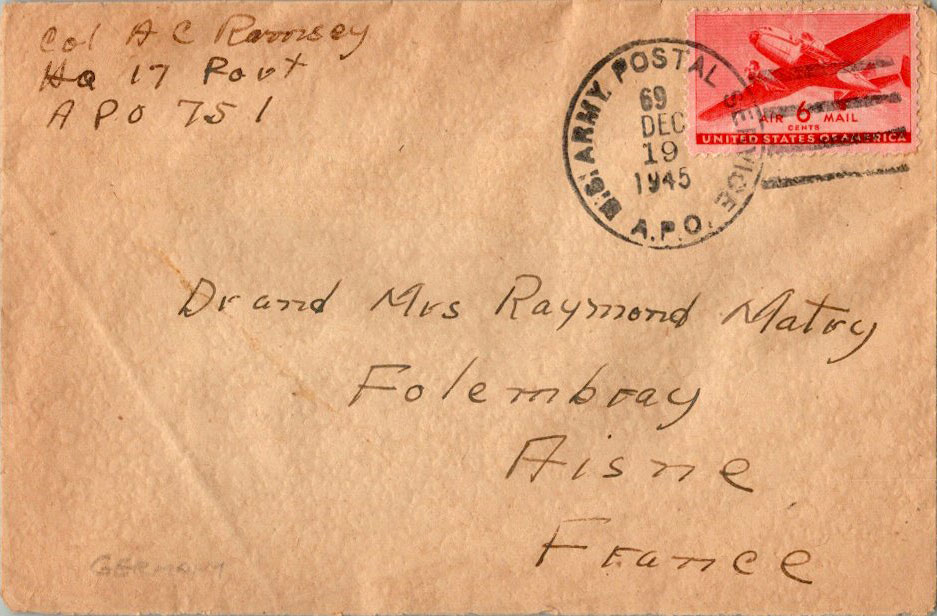 Col A C Ramsey
Hq 17 Port
A P O 751
U.S. ARMY POSTAL SERVICE
69
DEC
19
1945
A.P.O.
AIR 6 MAIL
CENTS
UNITED STATES OF AMERICA
Dr and Mrs Raymond Matry
Folembray
Aisne
France
GERMANY